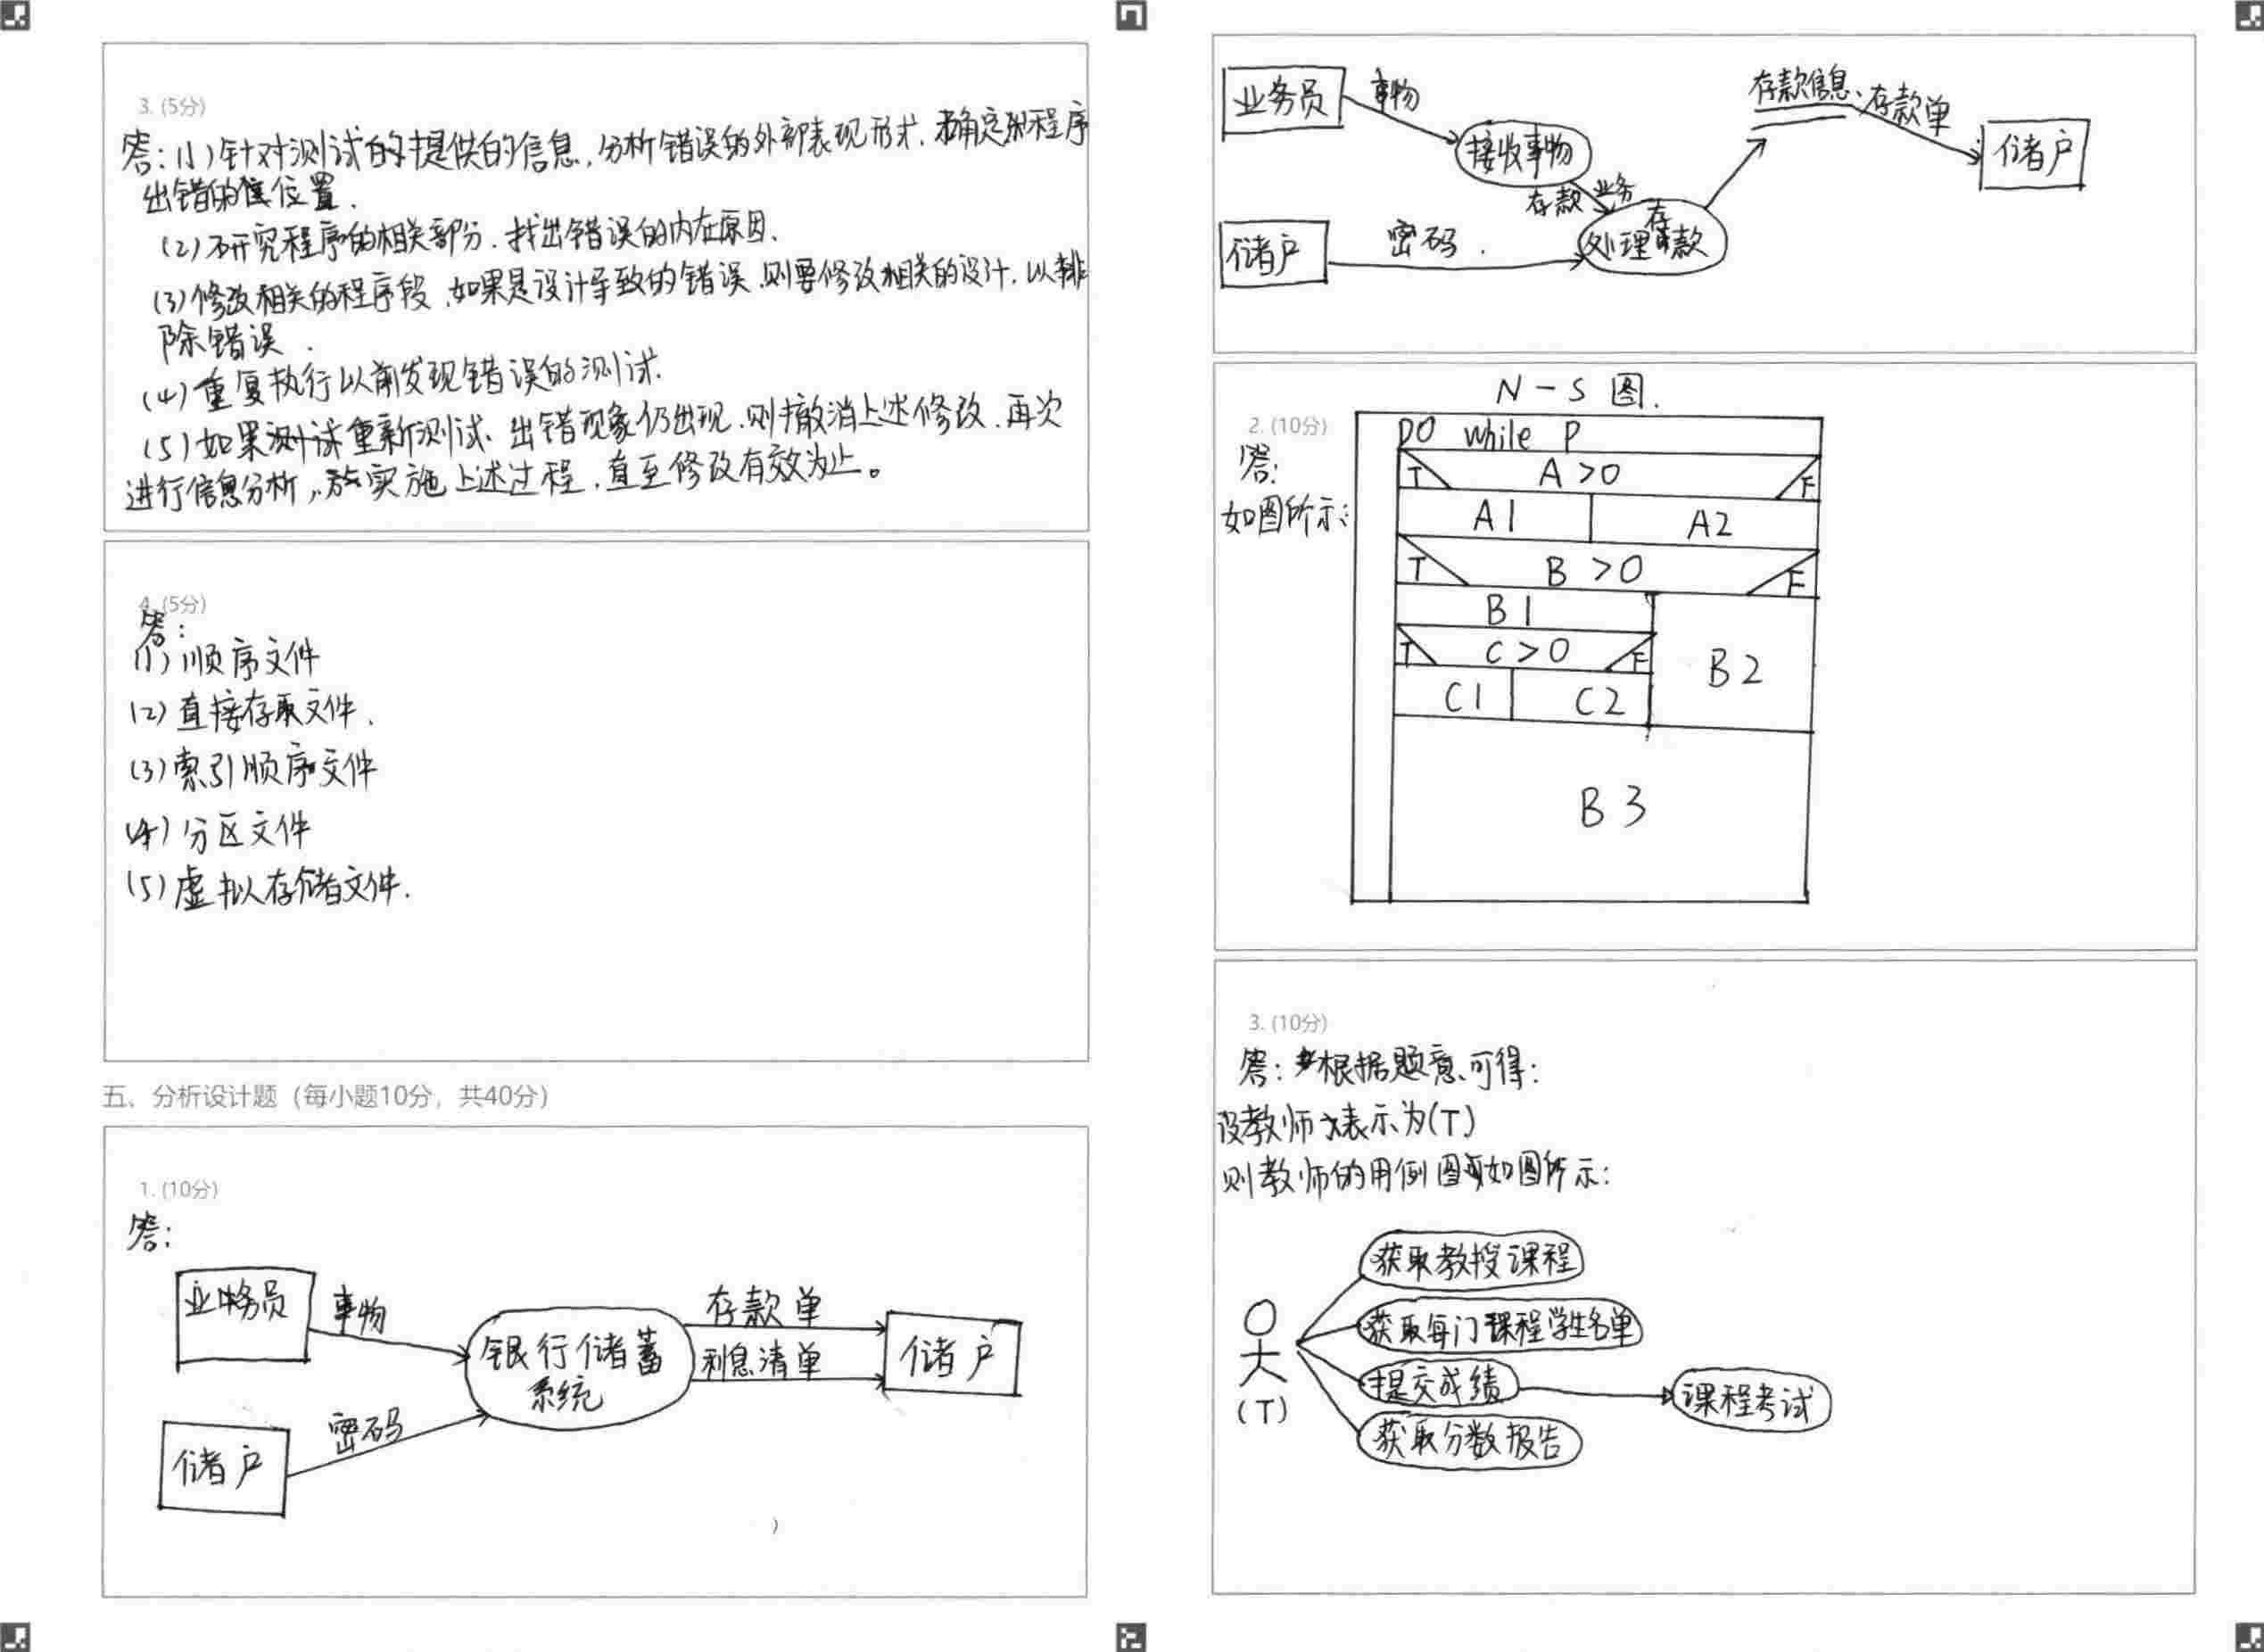 3. (5分)
答:(1)针对测试的提供的信息,分析错误的外部表现形式,确定程序
出错的位置.
(2)研究程序的相关部分.找出错误的内在原因.
(3)修改相关的程序段,如果是设计导致的错误,则要修改相关的设计,以排
除错误.
(4)重复执行以前发现错误的测试.
(5)如果测试重新测试、出错现象仍出现,则撤消上述修改,再次
进行信息分析,实施上述过程,直至修改有效为止。
4. (5分)
答:
(1)顺序文件
(2)直接存取文件.
(3)索引顺序文件
(4)分区文件
(5)虚拟存储文件.
五、分析设计题(每小题10分,共40分)
1. (10分)
答:
业务员
事物
银行储蓄
系统
存款单
利息清单
储户
储户
密码
业务员
事物
接收事物
存款业务
存款信息
存款单
储户
储户
密码.
处理存款
N-S图.
2. (10分)
答:
如图所示:
DO while P
T A>0 F
A1 A2
T B>0 F
B1
T C>0 F
B2
C1 C2
B3
3. (10分)
答:根据题意可得:
设教师表示为(T)
则教师的用例图如图所示:
获取教授课程
获取每门课程学生名单
提交成绩
课程考试
(T)
获取分数报告